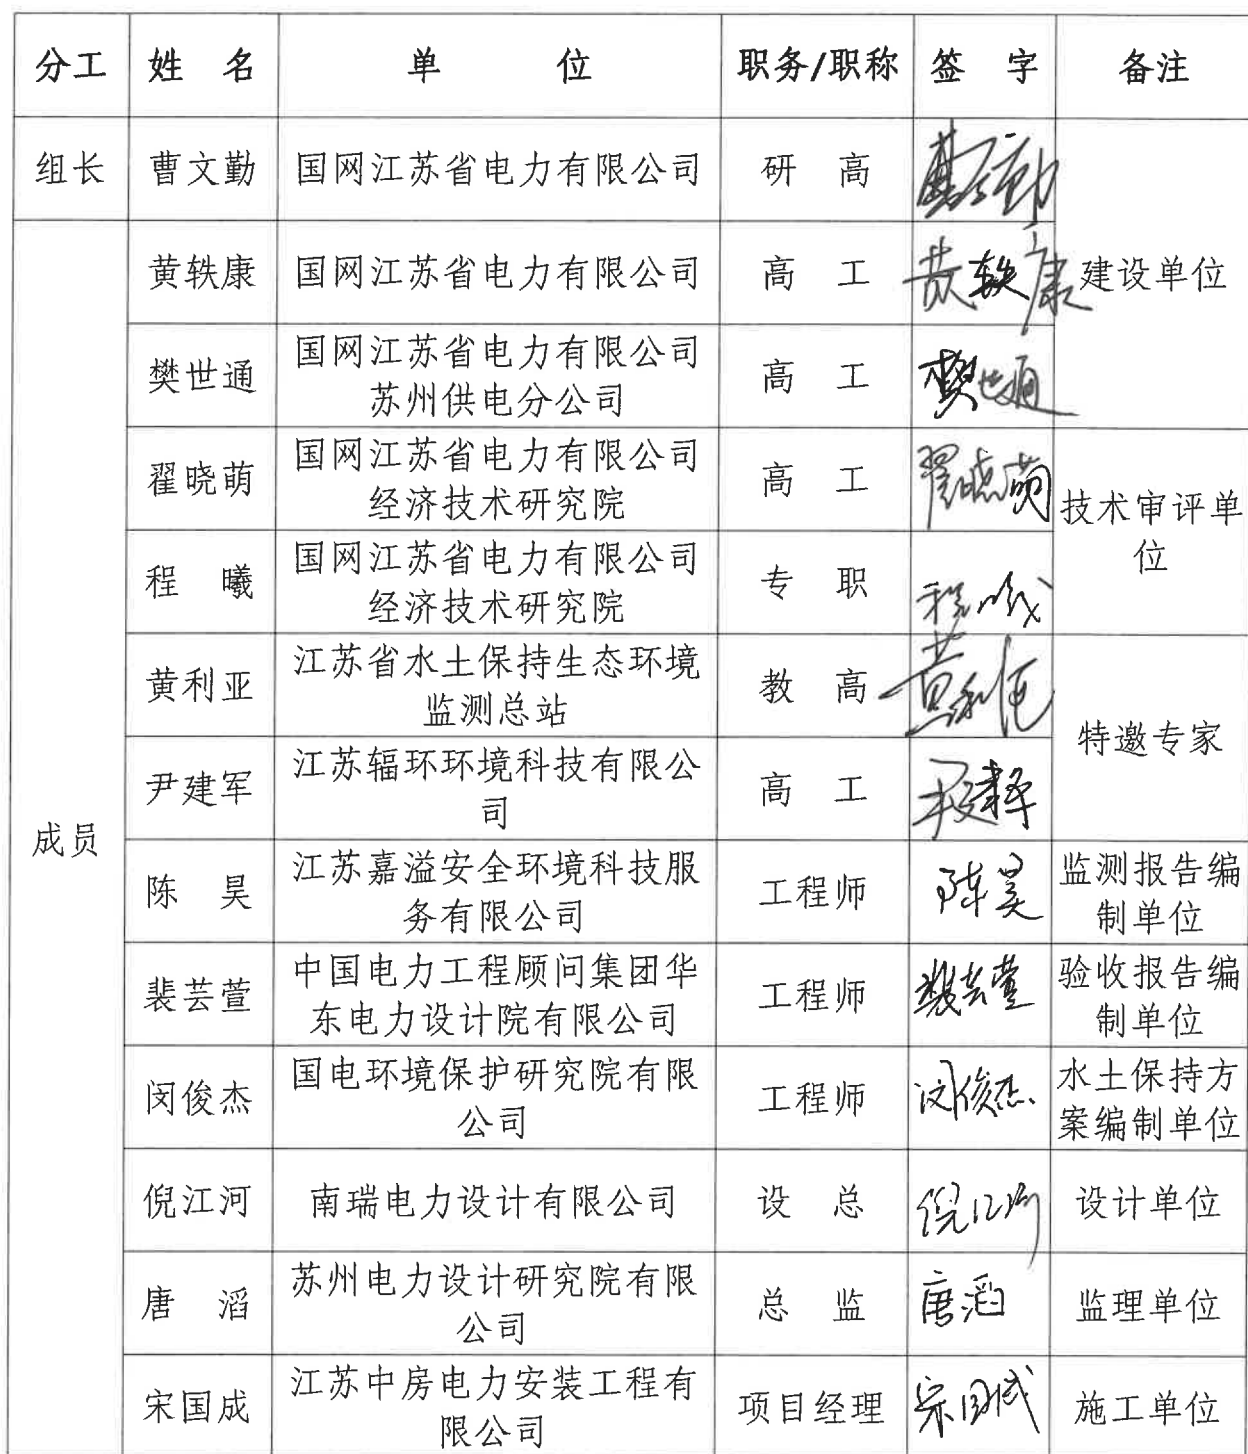 分工 姓 名 单 位 职务/职称 签 字 备注
组长 曹文勤 国网江苏省电力有限公司 研 高 曹文勤
成员
黄轶康 国网江苏省电力有限公司 高 工 黄轶康 建设单位
樊世通 国网江苏省电力有限公司
苏州供电分公司 高 工 樊世通
翟晓萌 国网江苏省电力有限公司
经济技术研究院 高 工 翟晓萌
技术审评单
位
程 曦 国网江苏省电力有限公司
经济技术研究院 专 职 程曦
黄利亚 江苏省水土保持生态环境
监测总站 教 高 黄利亚
特邀专家
尹建军 江苏辐环环境科技有限公
司 高 工 尹建军
陈 昊 江苏嘉溢安全环境科技服
务有限公司 工程师 陈昊 监测报告编
制单位
裴芸萱 中国电力工程顾问集团华
东电力设计院有限公司 工程师 裴芸萱 验收报告编
制单位
闵俊杰 国电环境保护研究院有限
公司 工程师 闵俊杰 水土保持方
案编制单位
倪江河 南瑞电力设计有限公司 设 总 倪江河 设计单位
唐 滔 苏州电力设计研究院有限
公司 总 监 唐滔 监理单位
宋国成 江苏中房电力安装工程有
限公司 项目经理 宋国成 施工单位